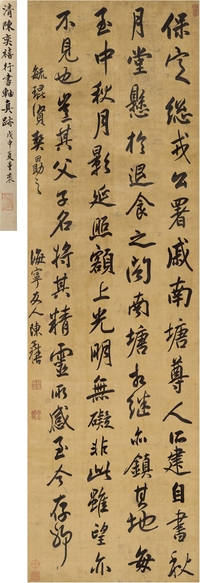 保定總戎公署戚南塘尊人所建自書秋
月堂懸於退食之閣南塘相繼亦鎮其地每
至中秋月影延照額上光明無礙非此雖望亦
不見也豈其父子名將其精靈所感至今存耶
毓琨賢契勗之
海寧友人陳奕禧
清陳奕禧行書軸真跡
戊申夏重裝